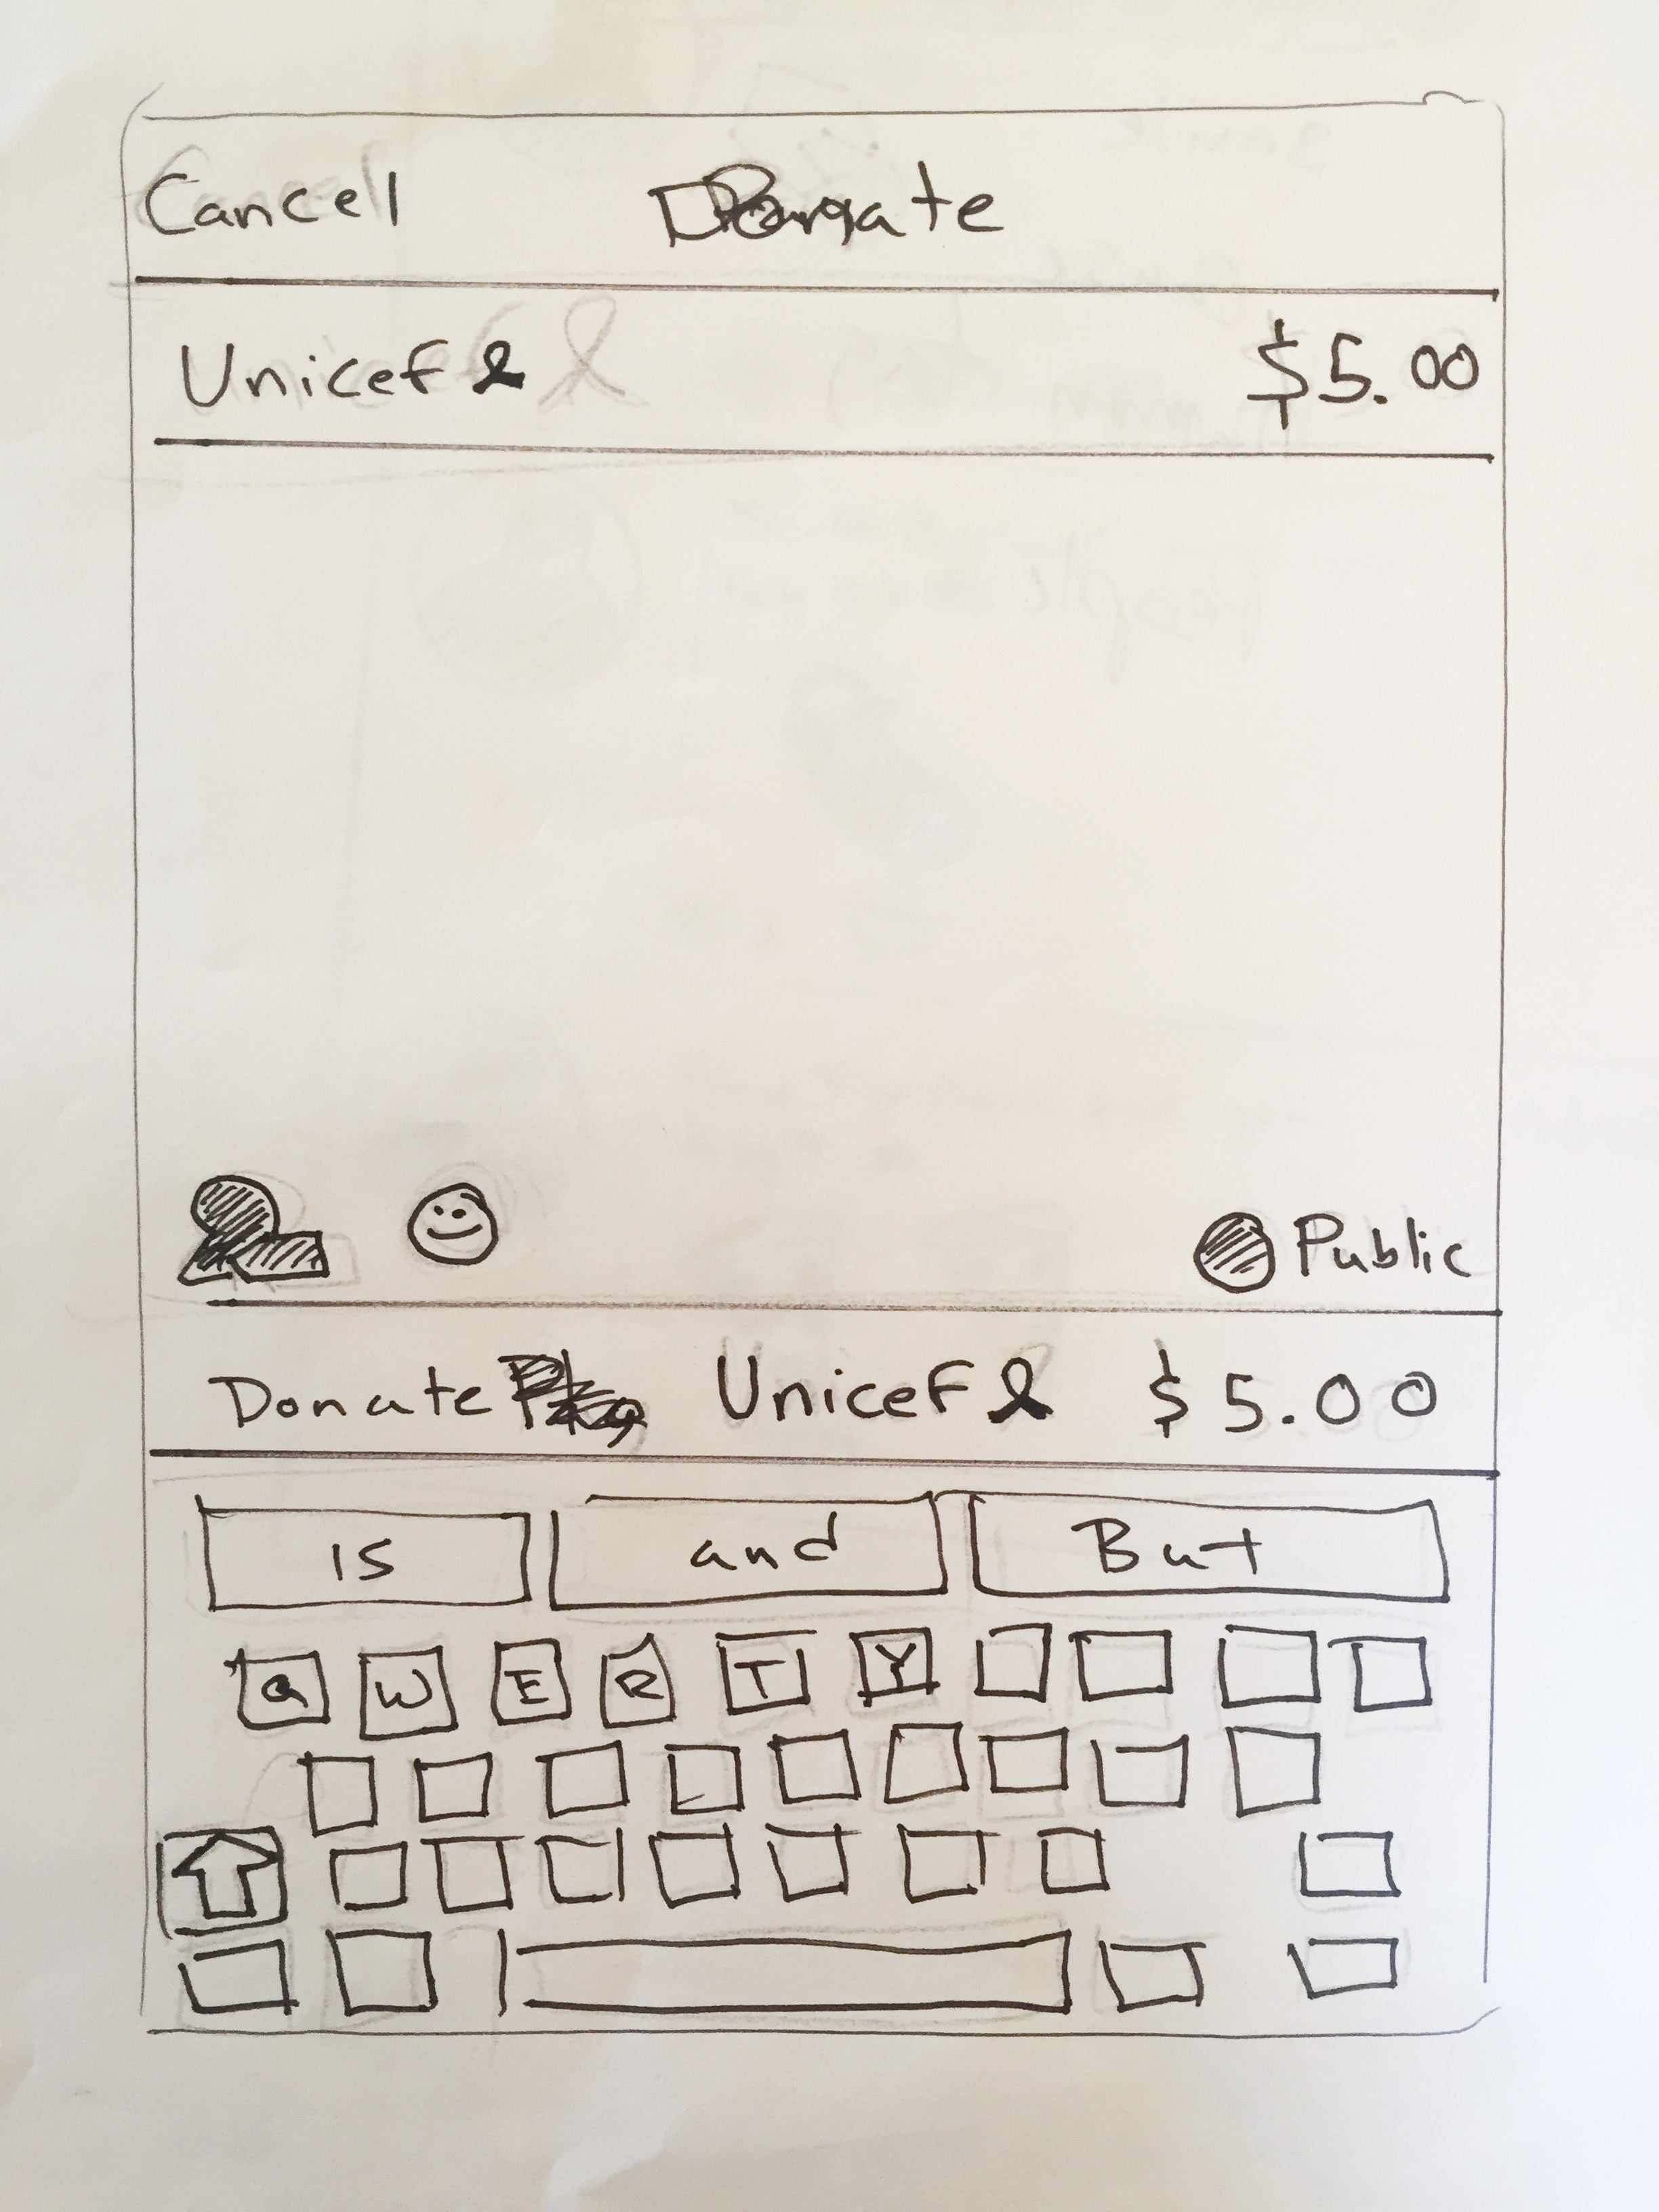 Cancel Donate
Unicef $5.00
Public
Donate Unicef $5.00
is and But
Q W E R T Y